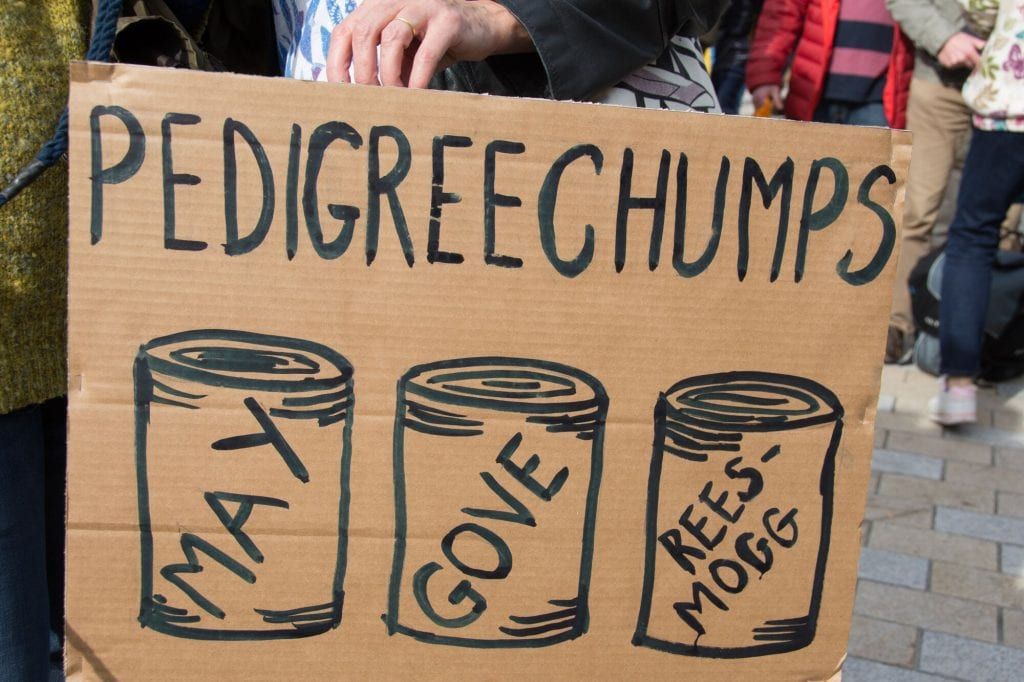 PEDIGREE CHUMPS
MAX
GOVE
REES-
MOGG